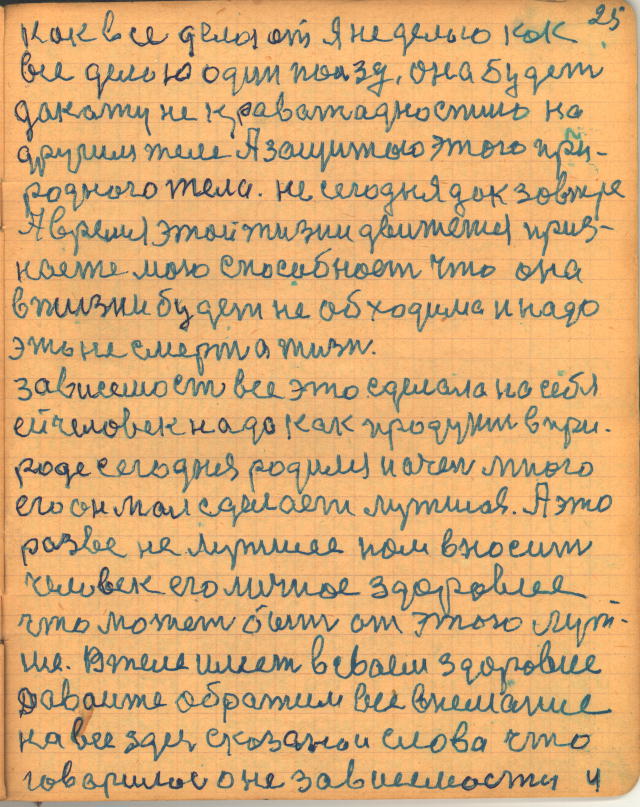 25
как все делают я не делаю как
все делаю один поизу, она будет
дакату не кравожадностию на
другим теле А защитою этого при-
родного тела. не сегодня дак завтре
А время этой жизни движется приз-
наете мою способност что она
в жизни будет не обходима и надо
эть не смерт а жизн.
зависемост все это сделала на себя
ей человек надо как продукт в при.
роде сегодня родился начем много
его он мал сделает лутшая. А это
разве не лутшее нам вносит
человек его личное здоровлее
что может быт от этого лут-
ше. Я теле имеет в сваем здоровие
даваите обратим все внемание
на все здез сказанои слова что
говарилос о не зависемости и